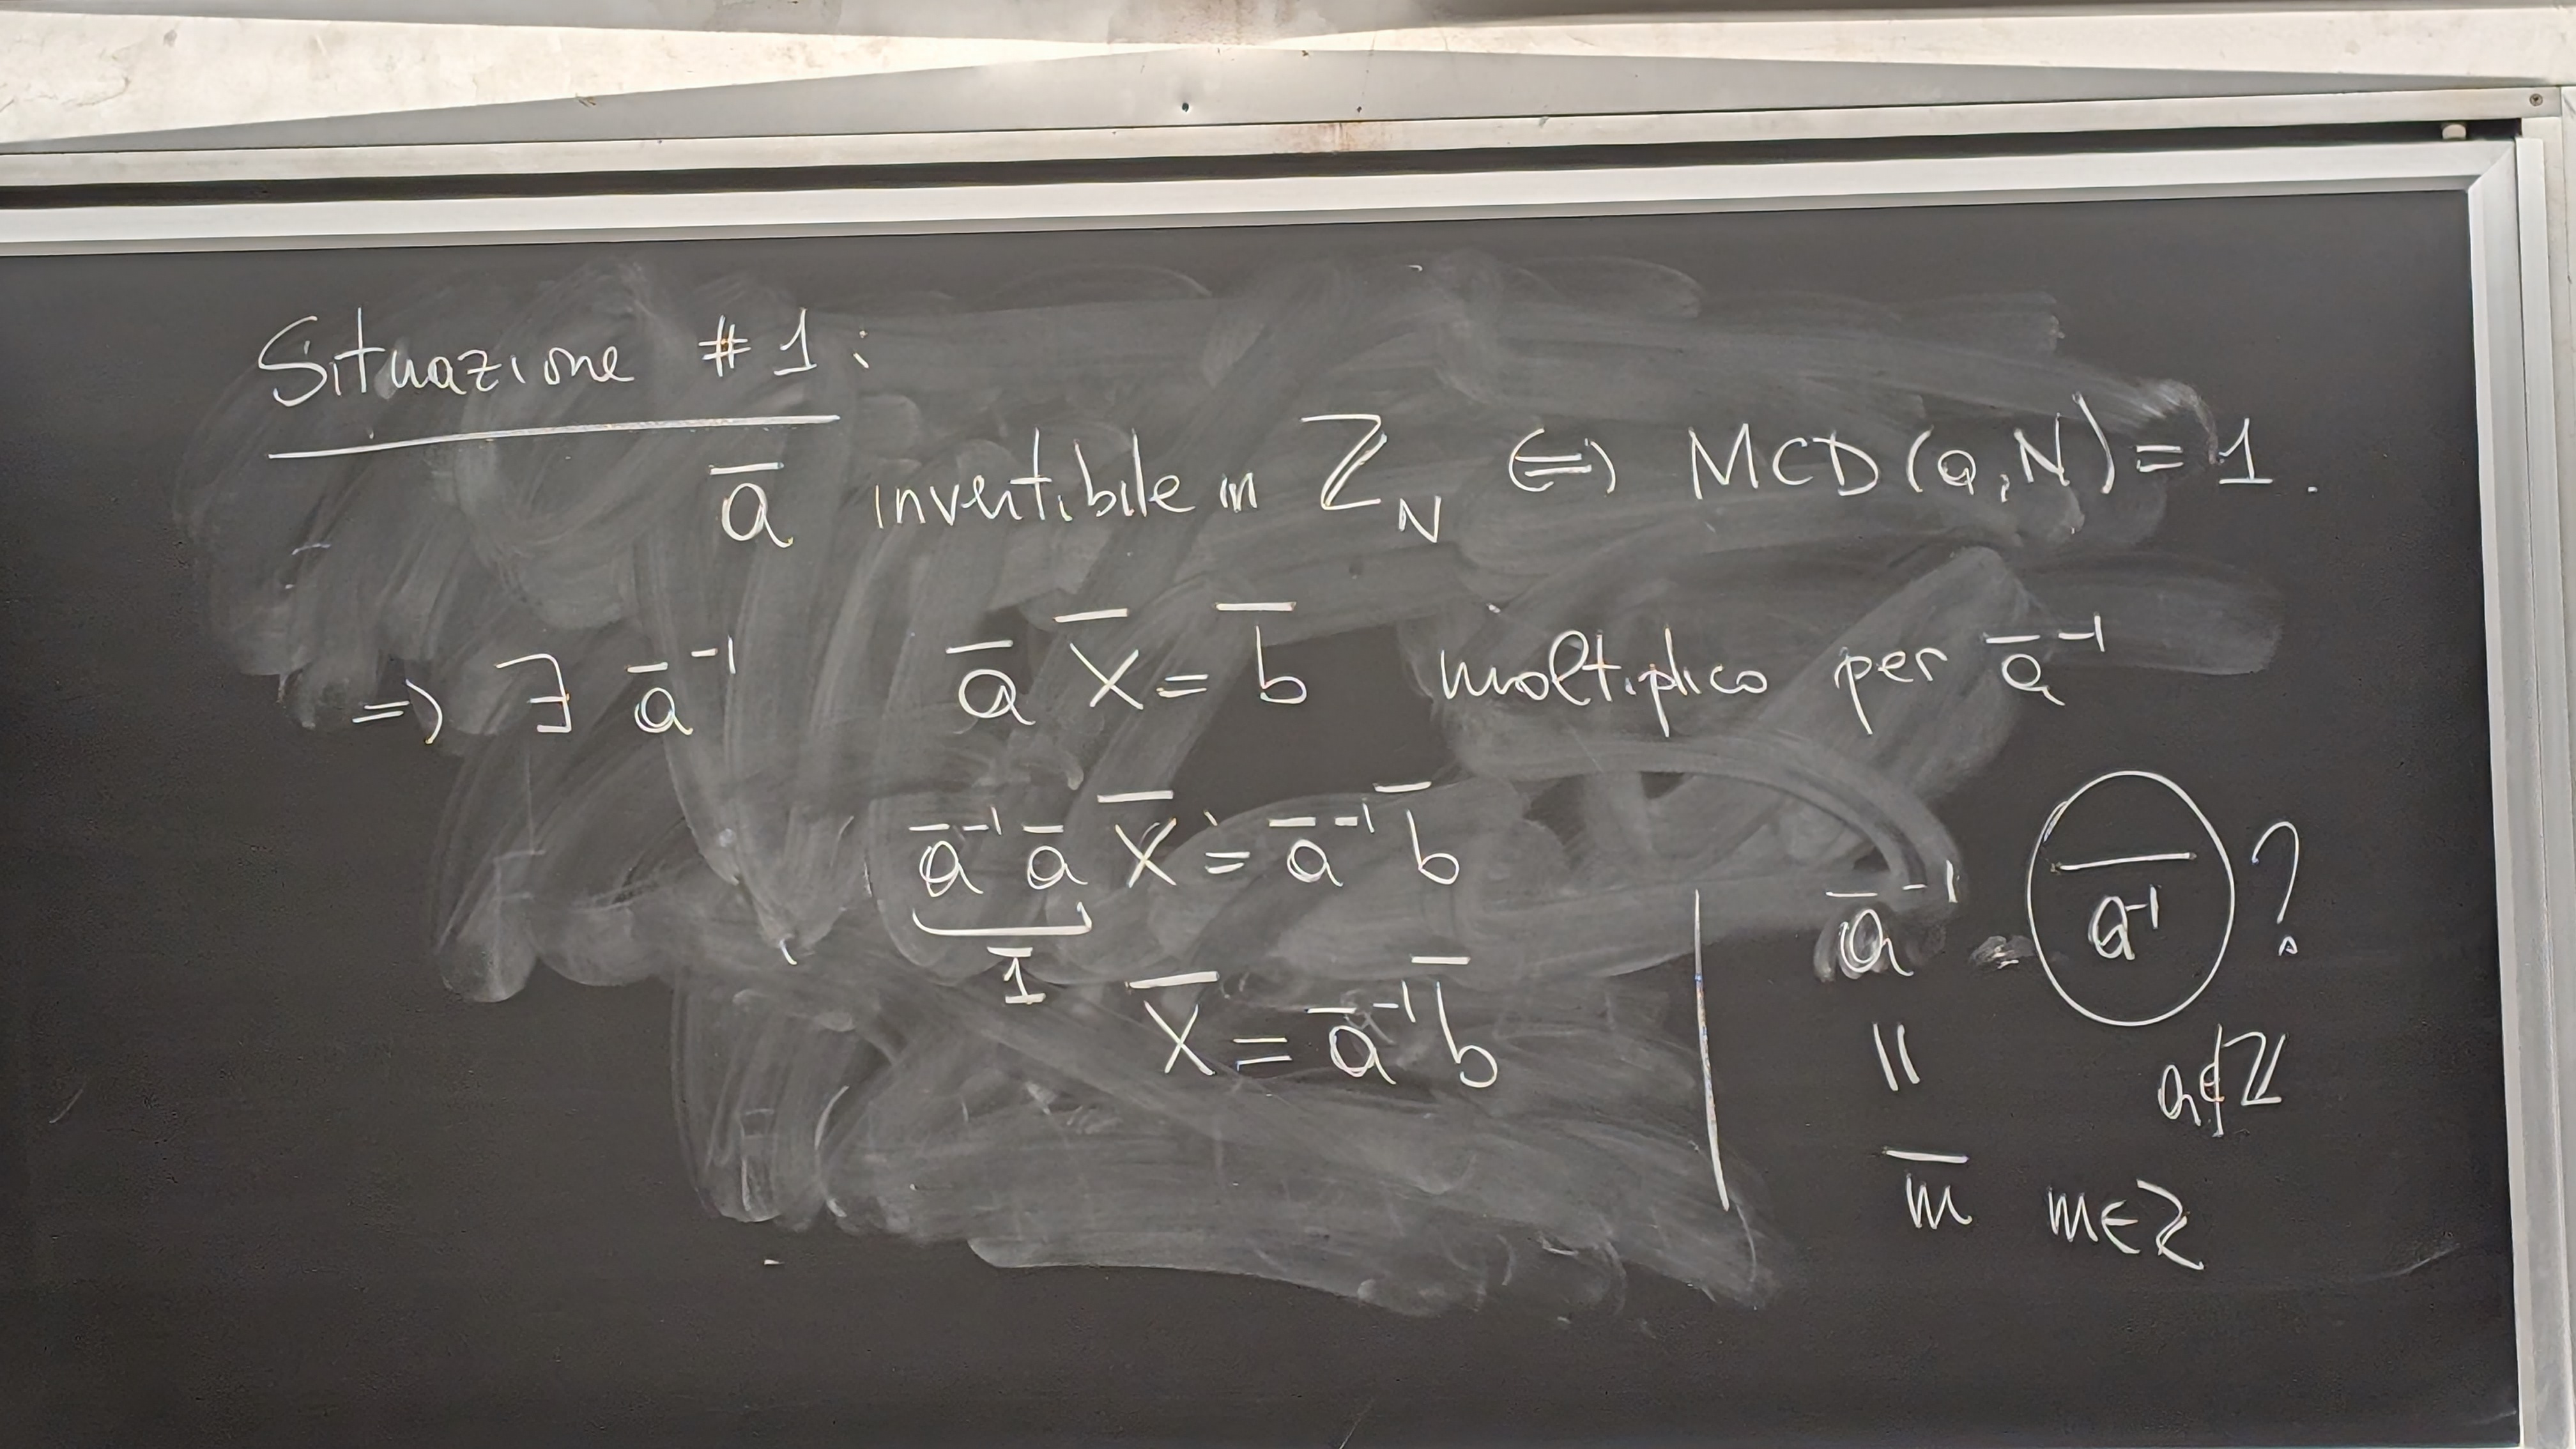 Situazione #1:
a̅ invertibile in ℤ_N ⟺ MCD(a,N)=1.
⟹ ∃ a̅⁻¹ a̅ X̅ = b̅ moltiplico per a̅⁻¹
a̅⁻¹ a̅ X̅ = a̅⁻¹ b̅
1̅
X̅ = a̅⁻¹ b̅
a̅⁻¹ = \overline{a⁻¹} ?
|| a∉ℤ
m̅ m∈ℤ